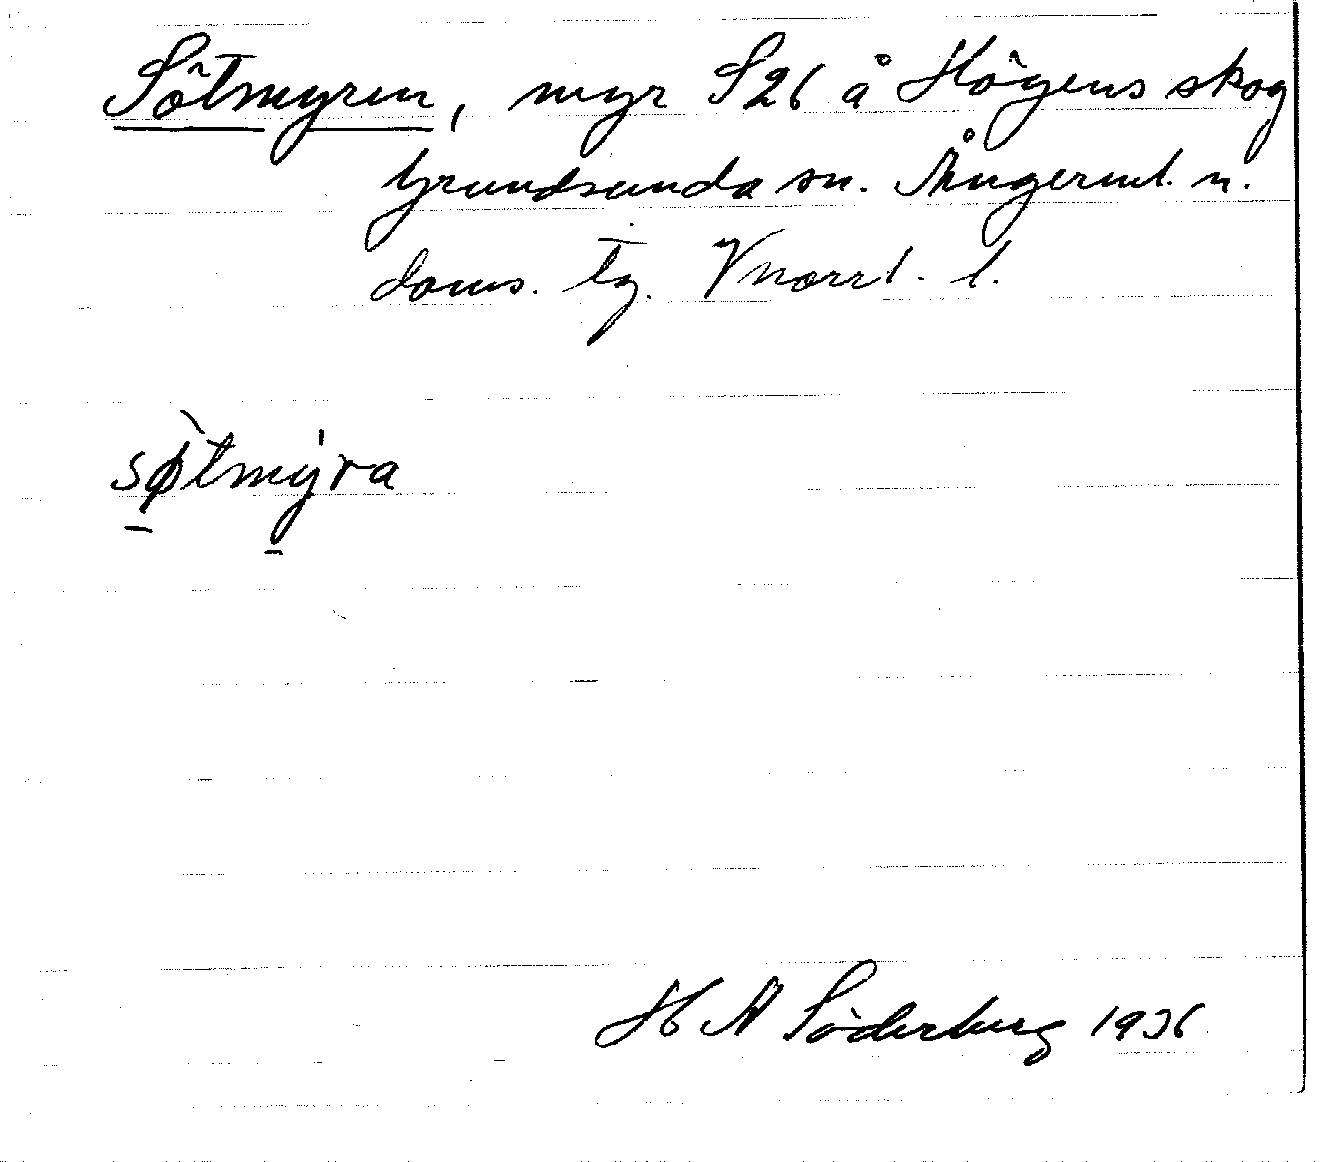 Sötmyren, myr S26 å Högens skog
Grundsunda sn. Ångerml. n.
doms. tg. Vnorrl. l.
sø̀tmy̍ra
H A Söderberg 1936